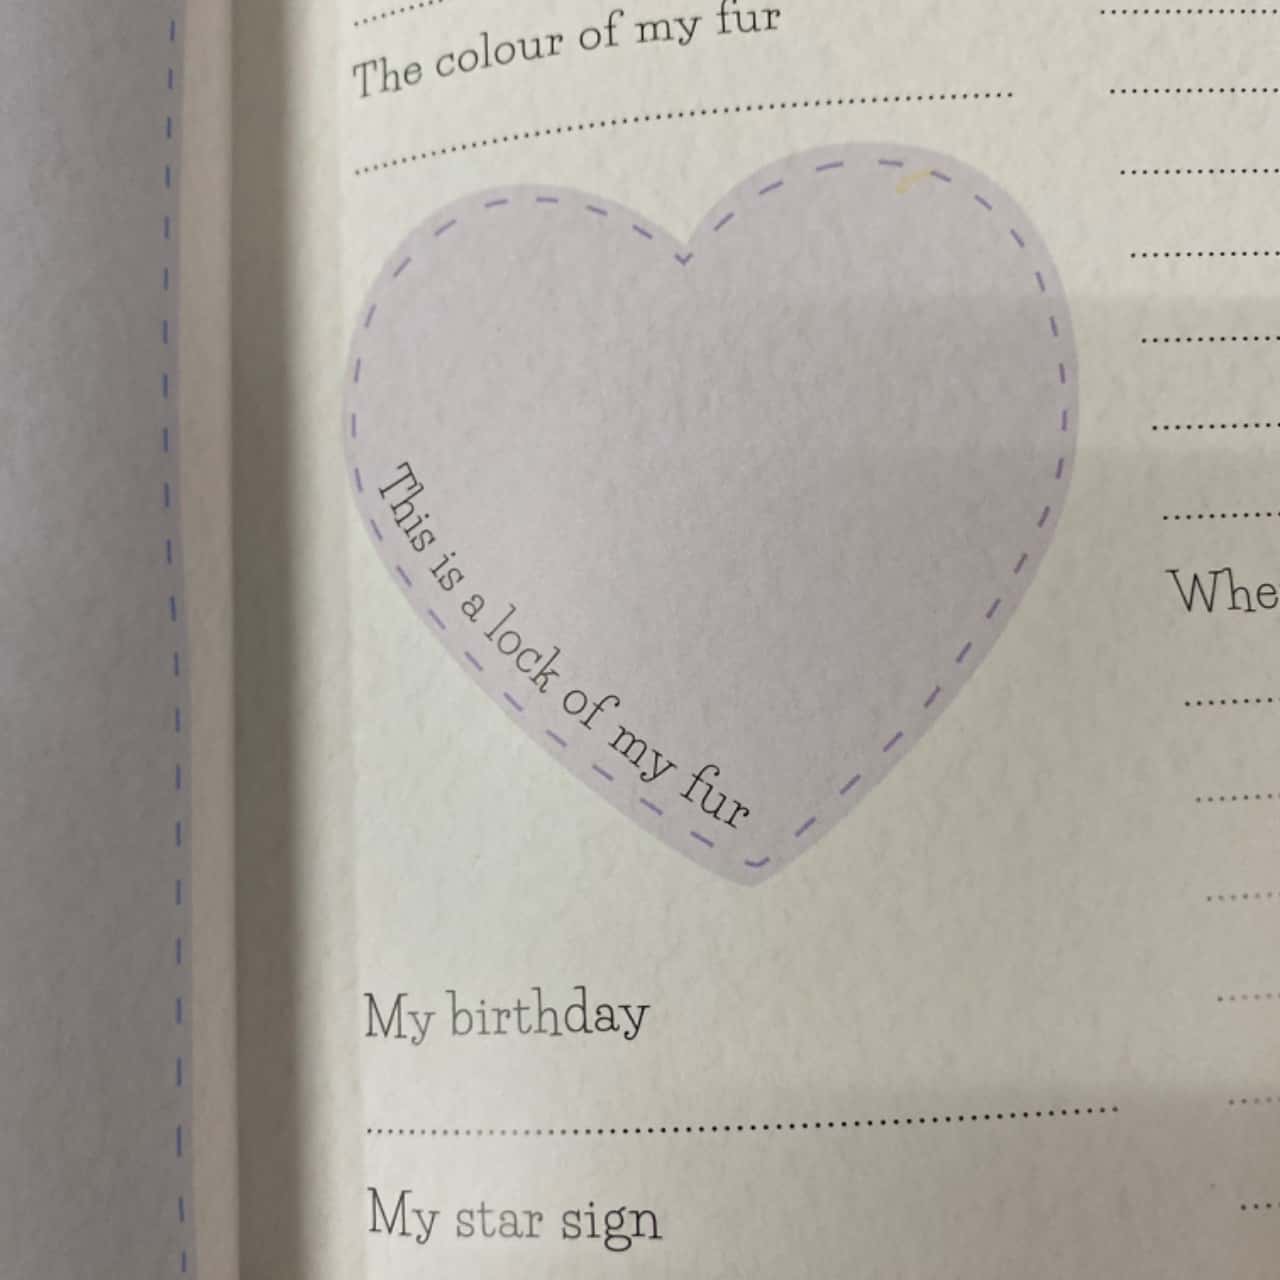 The colour of my fur
This is a lock of my fur
My birthday
My star sign